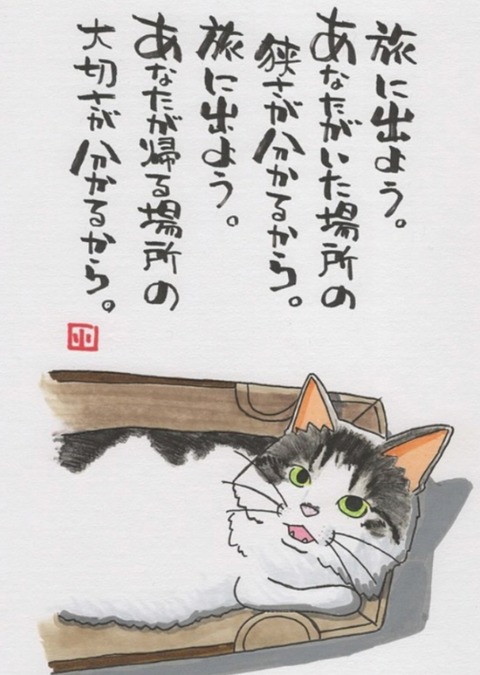 旅に出よう。
あなたがいた場所の
狭さが分かるから。
旅に出よう。
あなたが帰る場所の
大切さが分かるから。